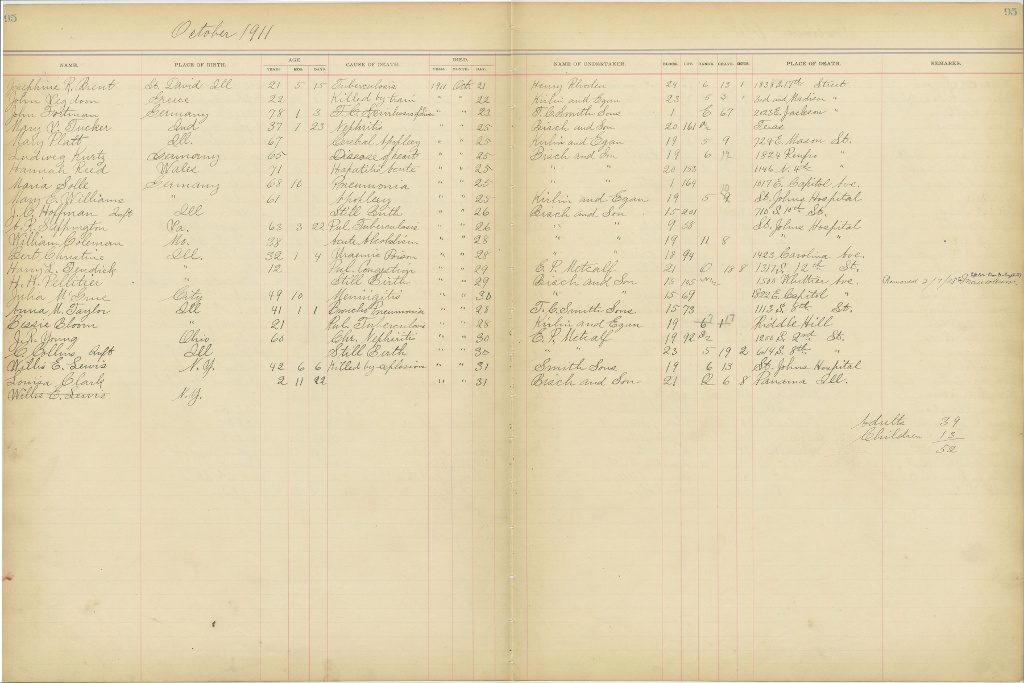 95 October 1911 95
NAME. PLACE OF BIRTH. AGE YEARS MOS. DAYS CAUSE OF DEATH. DIED. YEAR. MONTH. DAY. NAME OF UNDERTAKER. BLOCK. LOT. RANGE. GRAVE. SECTN. PLACE OF DEATH. REMARKS.
Josephine R. Brent St. David Ill 21 5 15 Tuberculosis 1911 Oct. 21 Henry Rhoden 24 6 13 1 1938 S. 17th Street
John Greece 22 Killed by train " " 22 Kirlin and Egan 23 5 3 3rd and Madison "
John Germany 78 1 3 " " 23 T. C. Smith Sons 1 6 67 2023 E. Jackson "
Mary V. Tucker Ind 37 7 23 Nephritis " " 25 Bisch and Son 20 161 Texas
Mary Platt Ill. 67 Cerebral Apoplexy " " 25 Kirlin and Egan 19 5 9 724 E. Mason St.
Ludwig Kurtz Germany 65 Disease of heart " " 25 Bisch and Son 19 6 1824 Renfro "
Hannah Reed Wales 71 Hepatitis Acute " " 25 " " 20 153 1146 N. 4th "
Maria Solle Germany 68 10 Pneumonia " " 25 " " 1 164 1017 E. Capitol Ave.
Mary E. Williams " 61 Apoplexy " " 25 Kirlin and Egan 19 5 St. Johns Hospital
J. C. Hoffman Inft Ill Still Birth " " 26 Bisch and Son 15 201 710 S. 10th St.
Va. 63 3 22 Pul. Tuberculosis " " 26 " " 9 58 St. Johns Hospital
William Coleman Mo. 38 Acute Alcoholism " " 28 " " 19 11 8
Bert Christine Ill. 32 1 4 Uraemic Poison " " 28 " 18 94 1423 Carolina Ave.
Fendrick " 12 Pul. Congestion " " 29 E. P. Metcalf 21 6 15 8 1317 S. 12th St.
H. H. Pelletier Still Birth " " 29 Bisch and Son 15 105 1505 Whittier Ave. Removed
Julia City 49 10 Meningitis " " 30 " " 15 69 1822 E. Capitol "
Anna M. Taylor Ill 41 1 1 Broncho Pneumonia " " 28 T. C. Smith Sons 15 73 1113 S. 8th St.
Bessie Bloom " 21 Pul. Tuberculosis " " 28 Kirlin and Egan 19 6 Riddle Hill
J. N. Young Ohio 60 Chr. Nephritis " " 30 E. P. Metcalf 19 92 S. 2nd St.
J. C. Collins Inft Ill Still Birth " " 30 " " 23 5 19 2 614 S. 8th "
Willis E. Lewis N.Y. 42 6 6 Killed by explosion " " 31 Smith Sons 19 6 13 St. Johns Hospital
Louisa Clark 2 11 22 " " 31 Bisch and Son 21 2 6 8 Panama Ill.
Willis E. Lewis N.Y.
Adults 39
Children 13
52